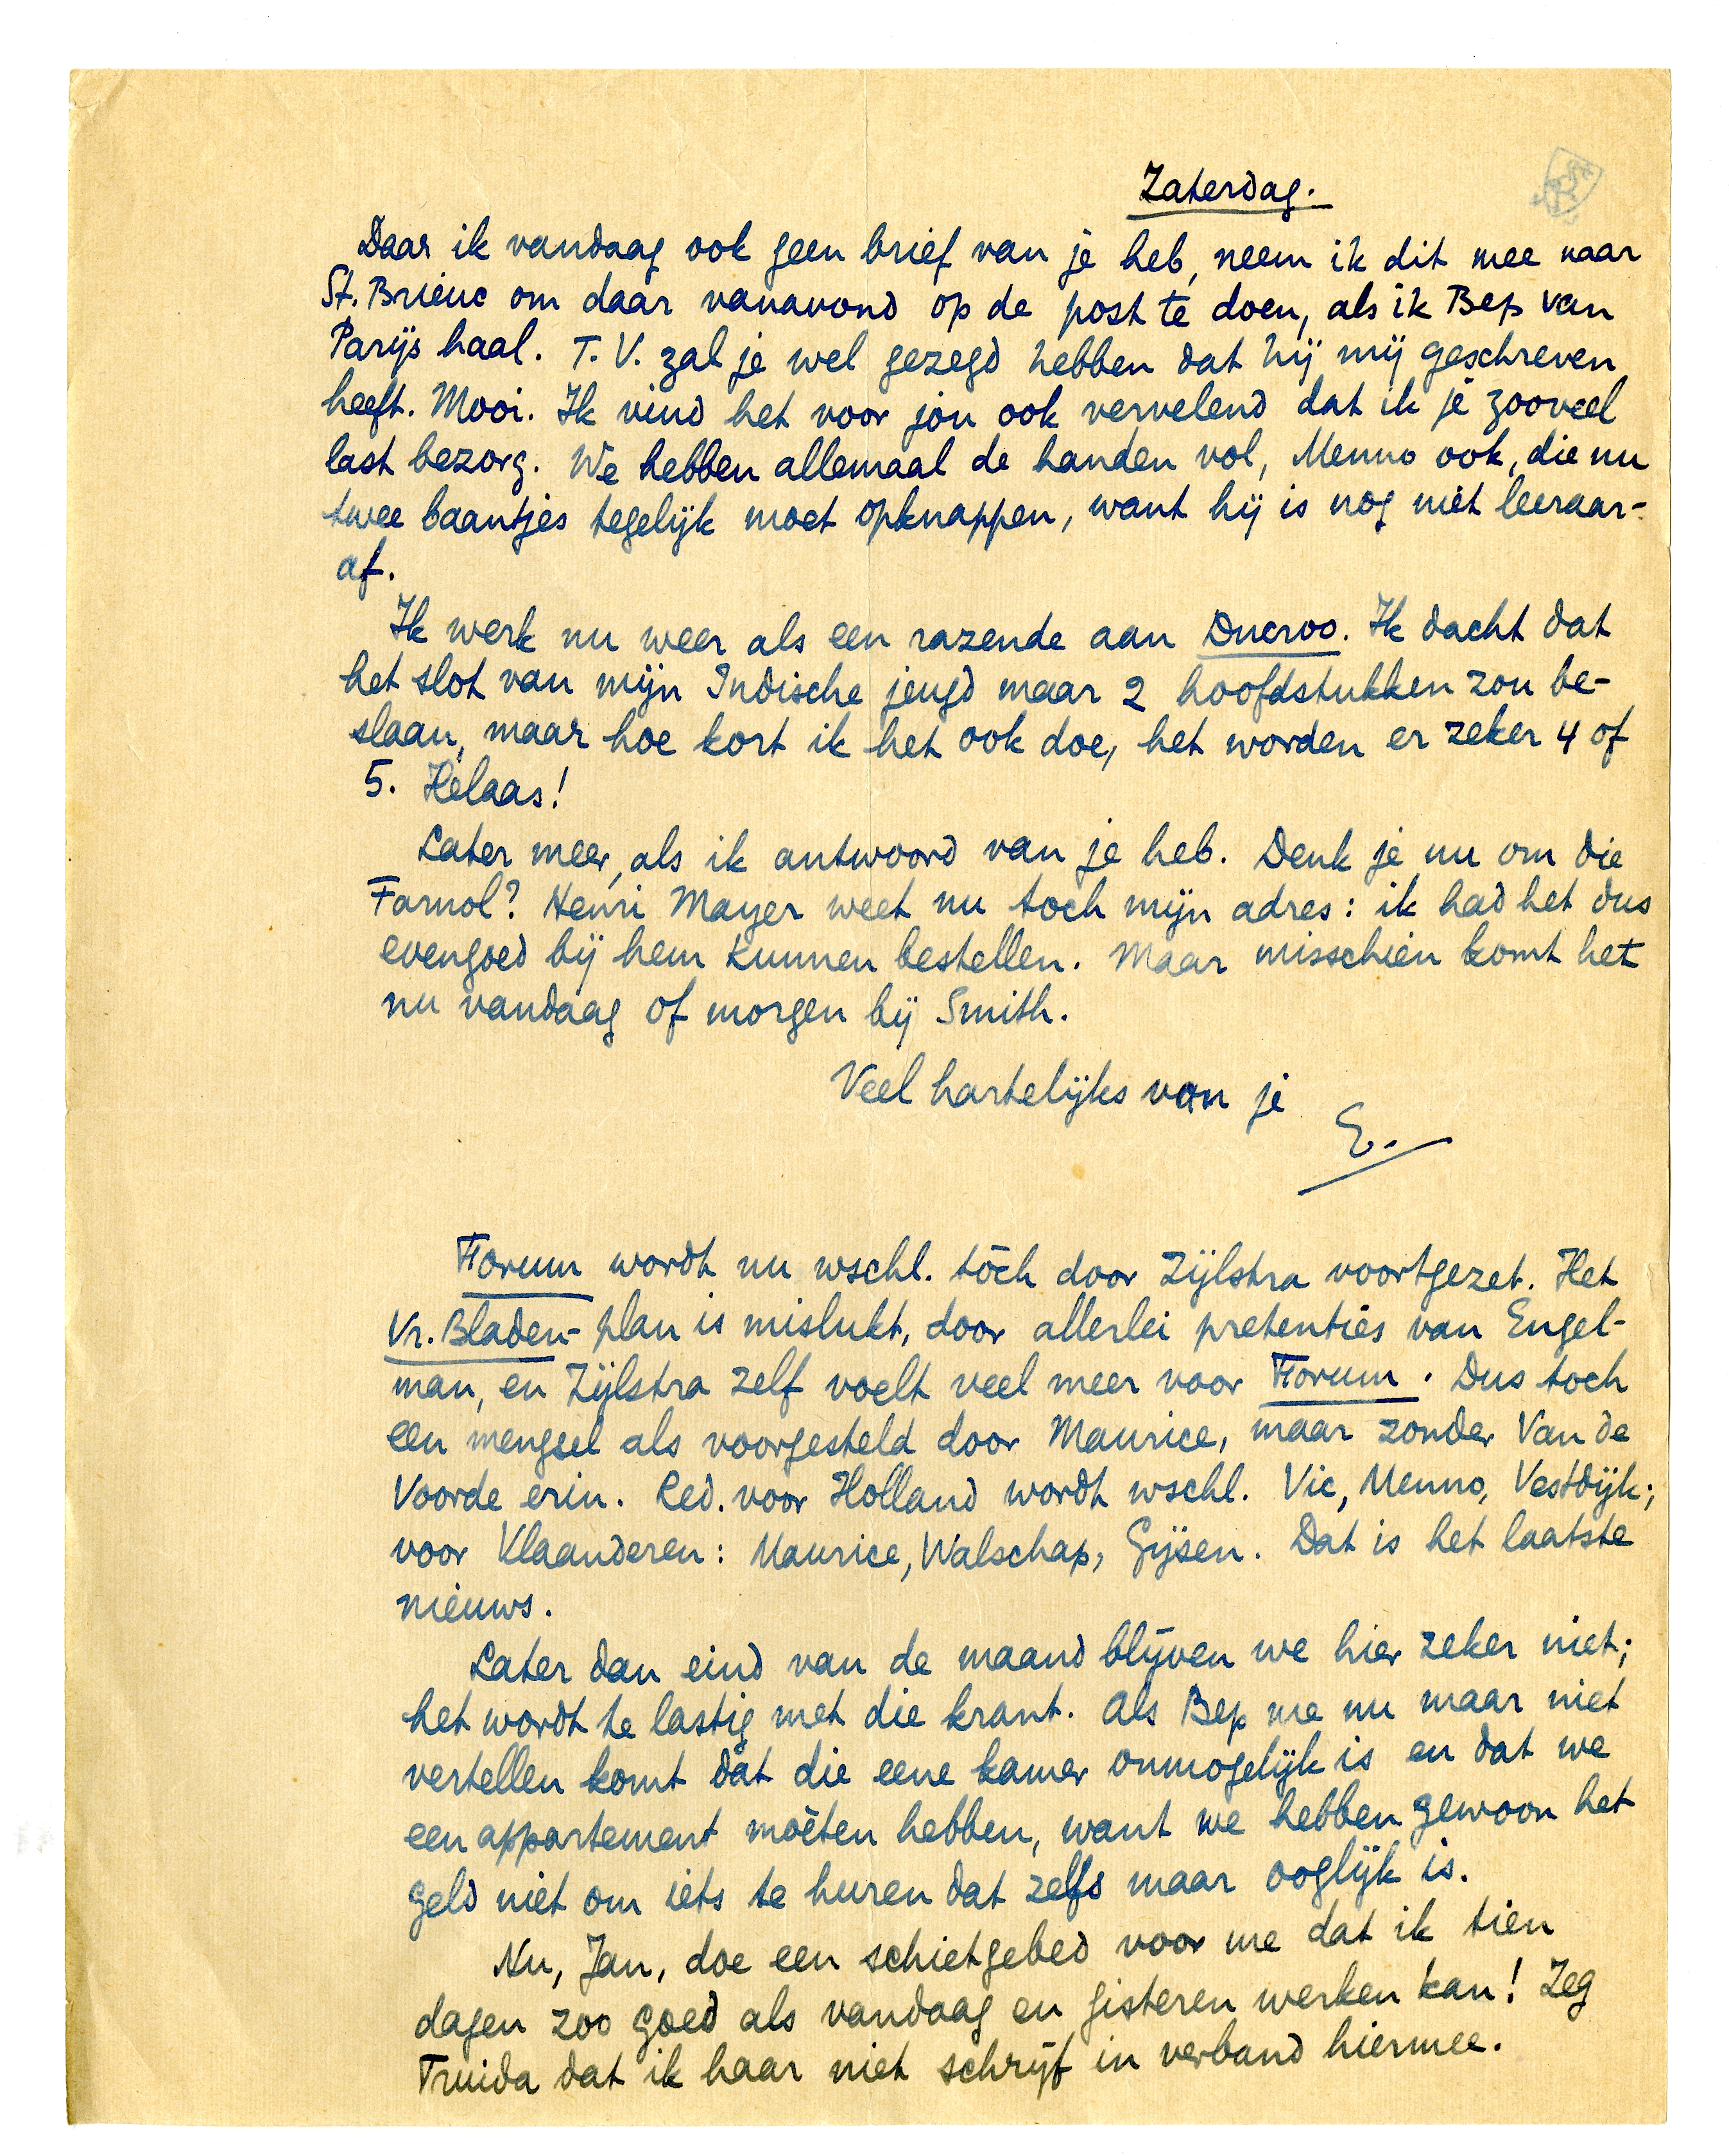 Zaterdag.
Daar ik vandaag ook geen brief van je heb, neem ik dit mee naar
St. Brieuc om daar vanavond op de post te doen, als ik Bep van
Parijs haal. T. V. zal je wel gezegd hebben dat hij mij geschreven
heeft. Mooi. Ik vind het voor jou ook vervelend dat ik je zooveel
last bezorg. We hebben allemaal de handen vol, Menno ook, die nu
twee baantjes tegelijk moet opknappen, want hij is nog niet leeraar-
af.
Ik werk nu weer als een razende aan Ducroo. Ik dacht dat
het slot van mijn Indische jeugd maar 2 hoofdstukken zou be-
slaan, maar hoe kort ik het ook doe, het worden er zeker 4 of
5. Helaas!
Later meer, als ik antwoord van je heb. Denk je nu om die
Farnol? Henri Mayer weet nu toch mijn adres: ik had het dus
evengoed bij hem kunnen bestellen. Maar misschien komt het
nu vandaag of morgen bij Smith.
Veel hartelijks van je
E.
Forum wordt nu wschl. tòch door Zijlstra voortgezet. Het
Vr. Bladen-plan is mislukt, door allerlei pretenties van Engel-
man, en Zijlstra zelf voelt veel meer voor Forum. Dus toch
een mengsel als voorgesteld door Maurice, maar zonder Van de
Voorde erin. Red. voor Holland wordt wschl. Vic, Menno, Vestdijk;
voor Vlaanderen: Maurice, Walschap, Gijsen. Dat is het laatste
nieuws.
Later dan eind van de maand blijven we hier zeker niet;
het wordt te lastig met die krant. Als Bep me nu maar niet
vertellen komt dat die eene kamer onmogelijk is en dat we
een appartement mòeten hebben, want we hebben gewoon het
geld niet om iets te huren dat zelfs maar ooglijk is.
Nu, Jan, doe een schietgebed voor me dat ik tien
dagen zoo goed als vandaag en gisteren werken kan! Zeg
Truida dat ik haar niet schrijf in verband hiermee.